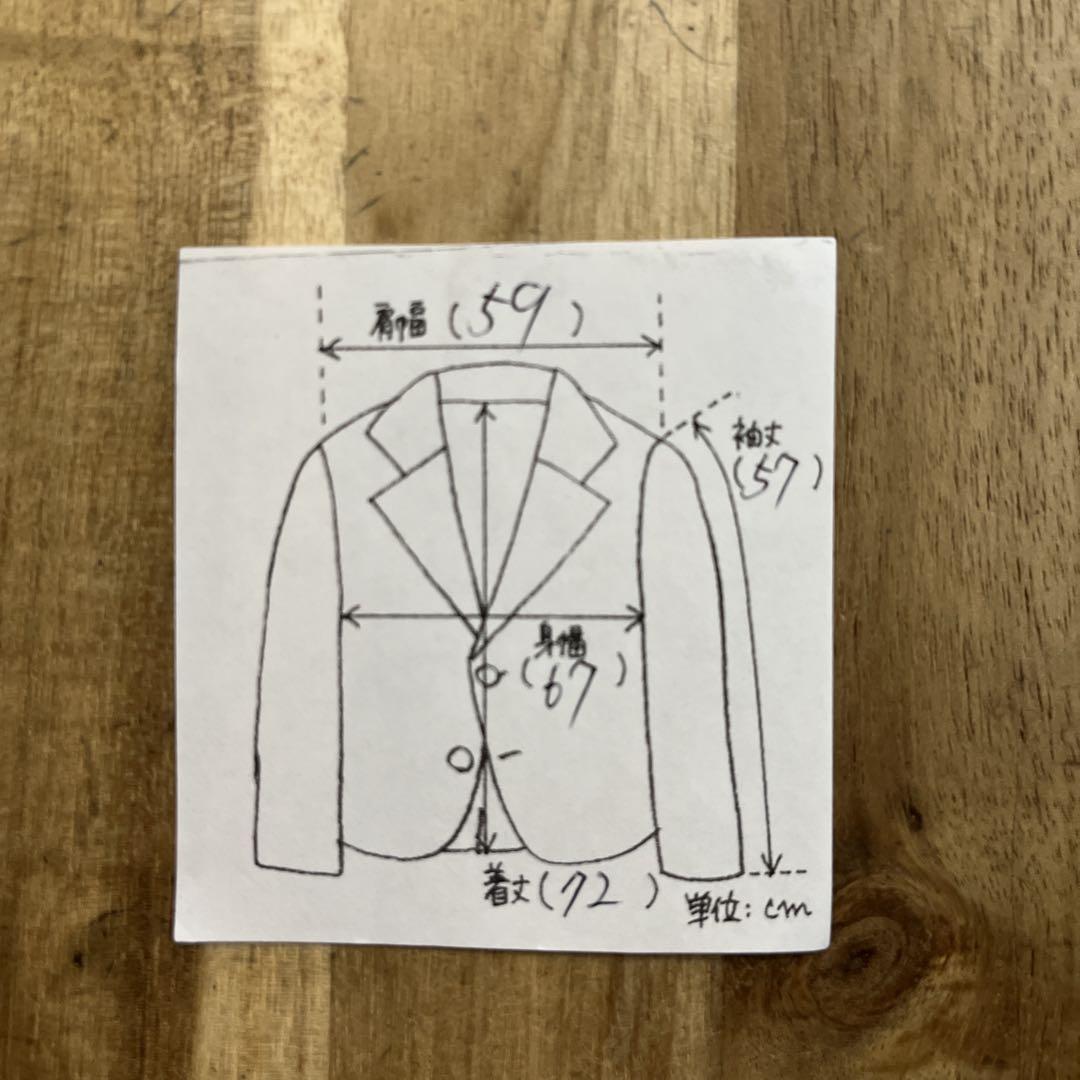 肩幅 (59)
袖丈
(57)
身幅
(67)
着丈 (72)
単位: cm